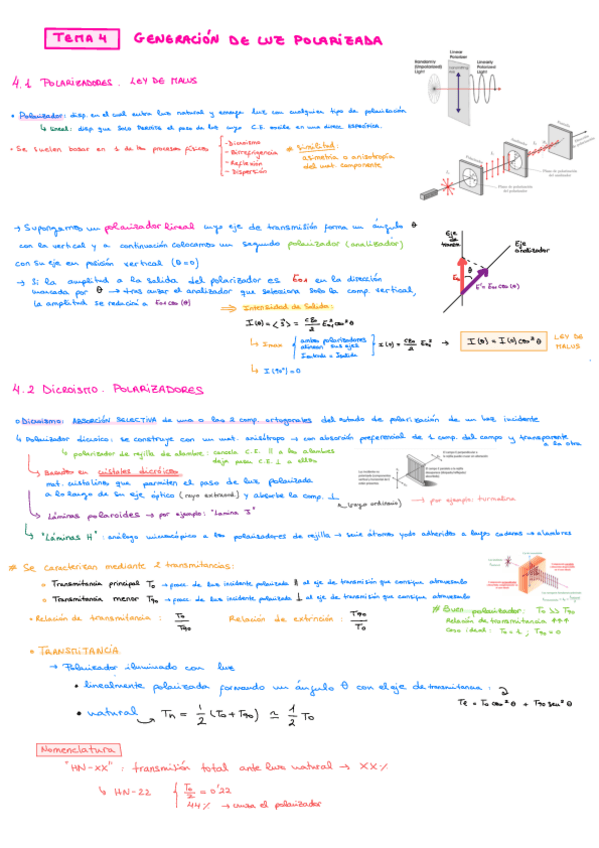 TEMA 4 GENERACIÓN DE LUZ POLARIZADA
4.1 POLARIZADORES. LEY DE MALUS
• Polarizador: disp. en el cual entra luz natural y emerge luz con cualquier tipo de polarización
↳ lineal: disp. que solo permite el paso de luz cuyo C.E. oscile en una direcc. específica.
• Se suelen basar en 1 de los procesos físicos
- Dicroismo
- Birrefrigencia
- Reflexión
- Dispersión
* similitud:
asimetría o anisotropía
del mat. componente
Randomly
(Unpolarized)
Light
Linear
Polarizer
Linearly
Polarized
Light
→ Supongamos un polarizador lineal cuyo eje de transmisión forma un ángulo θ
con la vertical y a continuación colocamos un segundo polarizador (analizador)
con su eje en posición vertical (θ=0)
→ Si la amplitud a la salida del polarizador es E01 en la dirección
marcada por θ → tras cruzar el analizador que selecciona solo la comp. vertical,
la amplitud se reducirá a E01 cos(θ)
Eje
de
transm.
Eje
analizador
θ
E' = E01 cos(θ)
⇒ Intensidad de Salida:
I(θ) = <S> = cε0/2 E01² cos²θ
↳ Imax { ambos polarizadores
alinean sus ejes
Ientrada = Isalida } I(0) = cε0/2 E01² → I(θ) = I(0) cos²θ LEY DE
MALUS
↳ I(90°) = 0
4.2 DICROISMO. POLARIZADORES
Dicroismo: ABSORCIÓN SELECTIVA de una o las 2 comp. ortogonales del estado de polarización de un haz incidente
↳ Polarizador dicroico: se construye con un mat. anisótropo → con absorción preferencial de 1 comp. del campo y transparente
a la otra
↳ polarizador de rejilla de alambre: cancela C.E. || a los alambres
deja pasar C.E. ⊥ a ellos
↳ Basados en cristales dicróicos
mat. cristalinos que permiten el paso de luz polarizada
a lo largo de su eje óptico (rayo extraord.) y absorbe la comp. ⊥
(rayo ordinario) → por ejemplo: turmalina
↳ Láminas polaroides → por ejemplo: "Lámina J"
↳ "Láminas H": análogo microscópico a los polarizadores de rejilla → serie átomos yodo adheridos a largas cadenas → alambres
* Se caracterizan mediante 2 transmitancias:
○ Transmitancia principal T0 → fracc. de luz incidente polarizada || al eje de transmisión que consigue atravesarlo
○ Transmitancia menor T90 → fracc. de luz incidente polarizada ⊥ al eje de transmisión que consigue atravesarlo
• Relación de transmitancia: T0/T90 Relación de extinción: T90/T0
* Buen polarizador: T0 >> T90
Relación de transmitancia ↑↑↑
Caso ideal: T0 = 1; T90 = 0
• TRANSMITANCIA:
→ Polarizador iluminado con luz
• linealmente polarizada formando un ángulo θ con el eje de transmitancia:
Tl = T0 cos²θ + T90 sen²θ
• natural → Tn = 1/2 (T0 + T90) ≃ 1/2 T0
Nomenclatura
"HN-XX": transmisión total ante luz natural → XX%
↳ HN-22 { T0/2 = 0'22
44% → cruza el polarizador